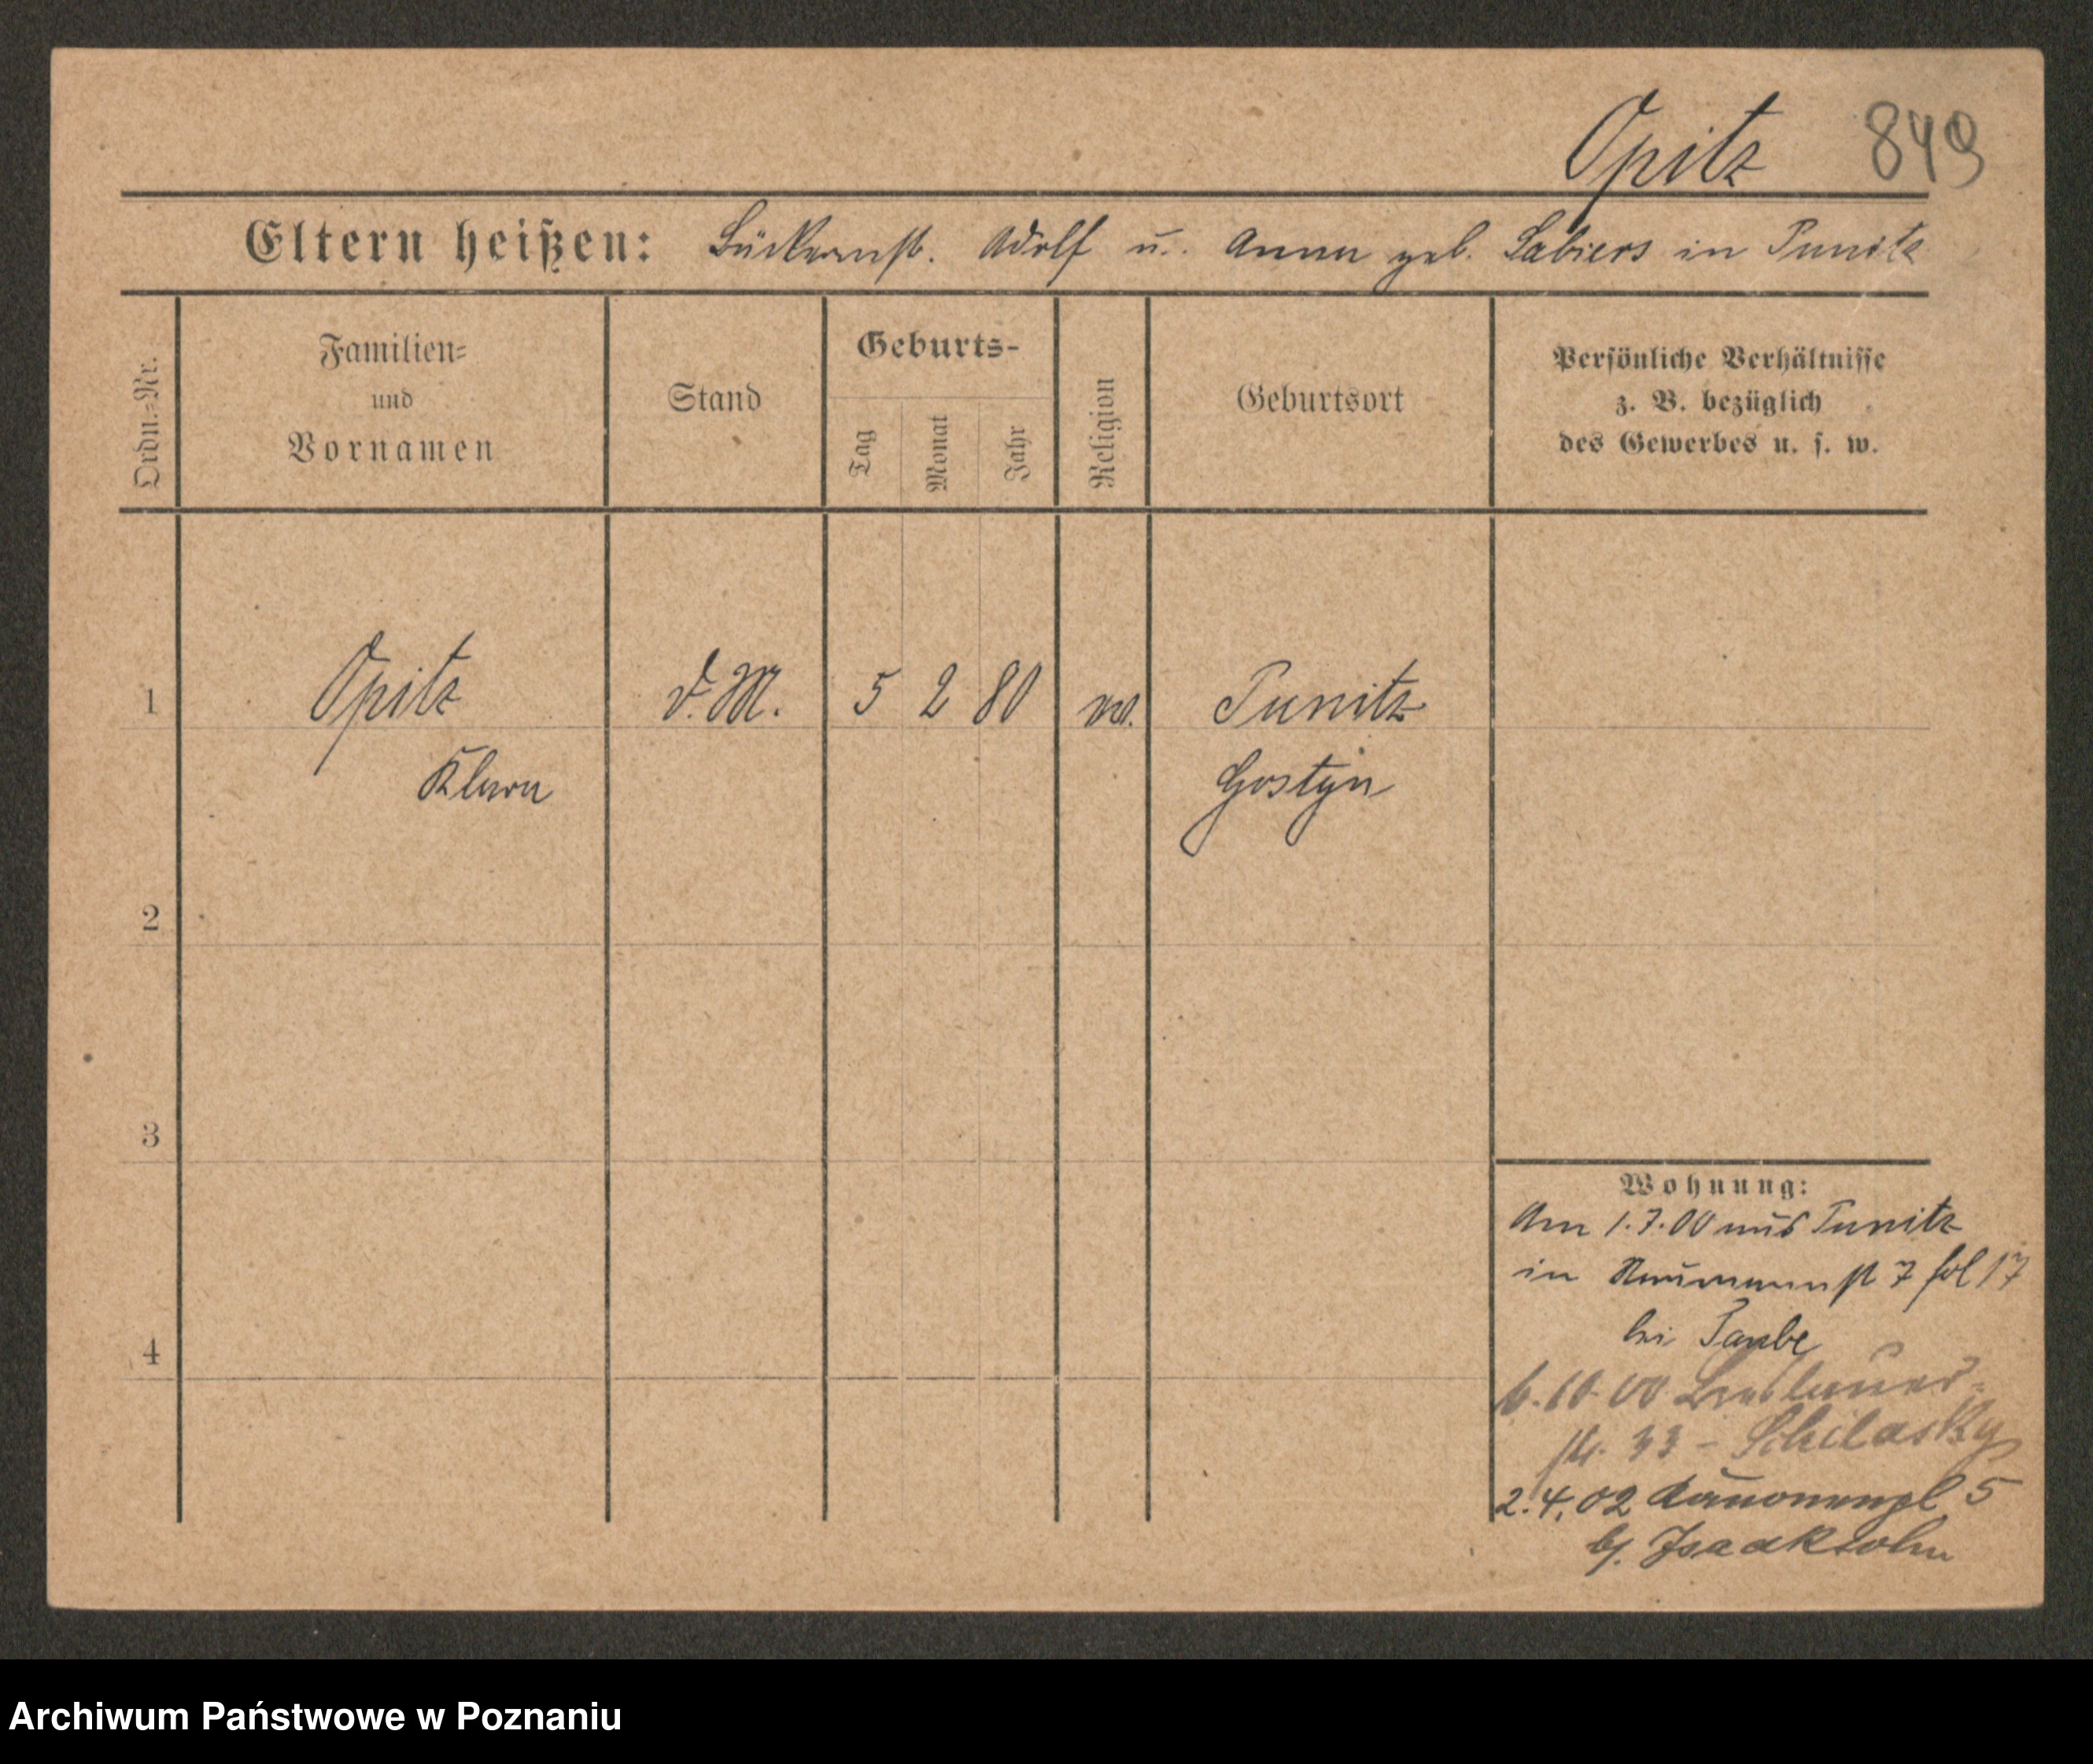 Opitz 849
Eltern heißen: Bäckermst. Adolf u. Anna geb. Sabiers in Punitz
Ordn.-Nr.
Familien-
und
Vornamen
Stand
Geburts-
Tag
Monat
Jahr
Religion
Geburtsort
Persönliche Verhältnisse
z. B. bezüglich
des Gewerbes u. s. w.
1 Opitz d. M. 5 2 80 Punitz
Klara Gostyn
2
3
4
Wohnung:
Am 1.7.00 aus Punitz
in Naumannst 7 fol 17
bei Taube
6.10.00 Breslauer-
str. 33 - Schilasky
2.4.02 Kanonenpl 5
b/. Isaaksohn
Archiwum Państwowe w Poznaniu